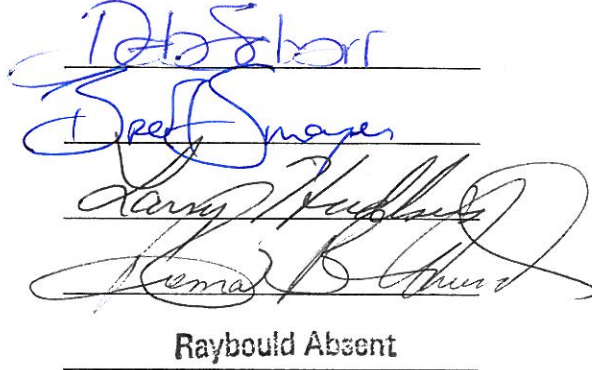 Deb Schorr
Brent Smoyer
Larry Hudkins
Roma B
Raybould Absent